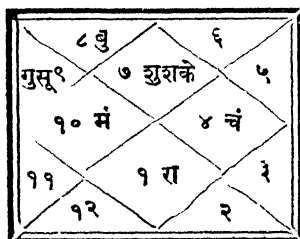 ८ बु ६
गुसू९ ७ शुशके ५
१० मं ४ चं
११ १ रा ३
१२ २